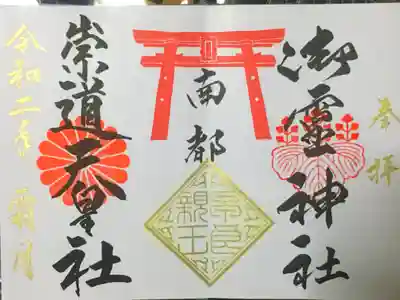 奉拝
御靈神社
南都
早良親王
崇道天皇社
令和二年 霜月